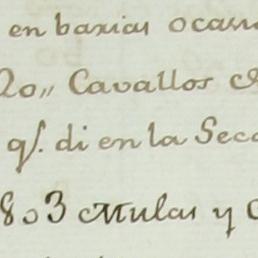 en baxias ocasio
20,, Cavallos
qs. di en la Sec
803 Mulas y